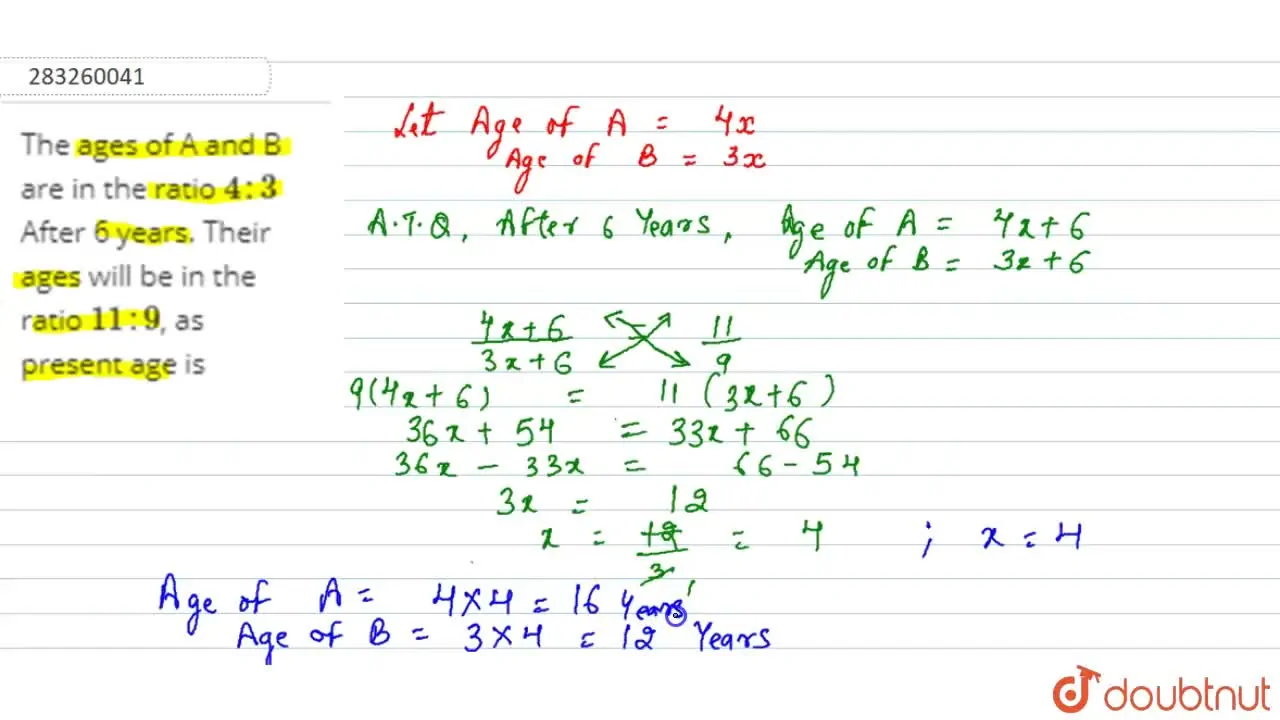 283260041
The ages of A and B
are in the ratio 4 : 3
After 6 years. Their
ages will be in the
ratio 11 : 9, as
present age is
Let Age of A = 4x
Age of B = 3x
A.T.Q, After 6 Years, Age of A = 4x + 6
Age of B = 3x + 6
4x + 6 11
3x + 6 9
9(4x + 6) = 11 (3x + 6)
36x + 54 = 33x + 66
36x - 33x = 66 - 54
3x = 12
x = 12 = 4 ; x = 4
3
Age of A = 4 × 4 = 16 Years
Age of B = 3 × 4 = 12 Years
doubtnut